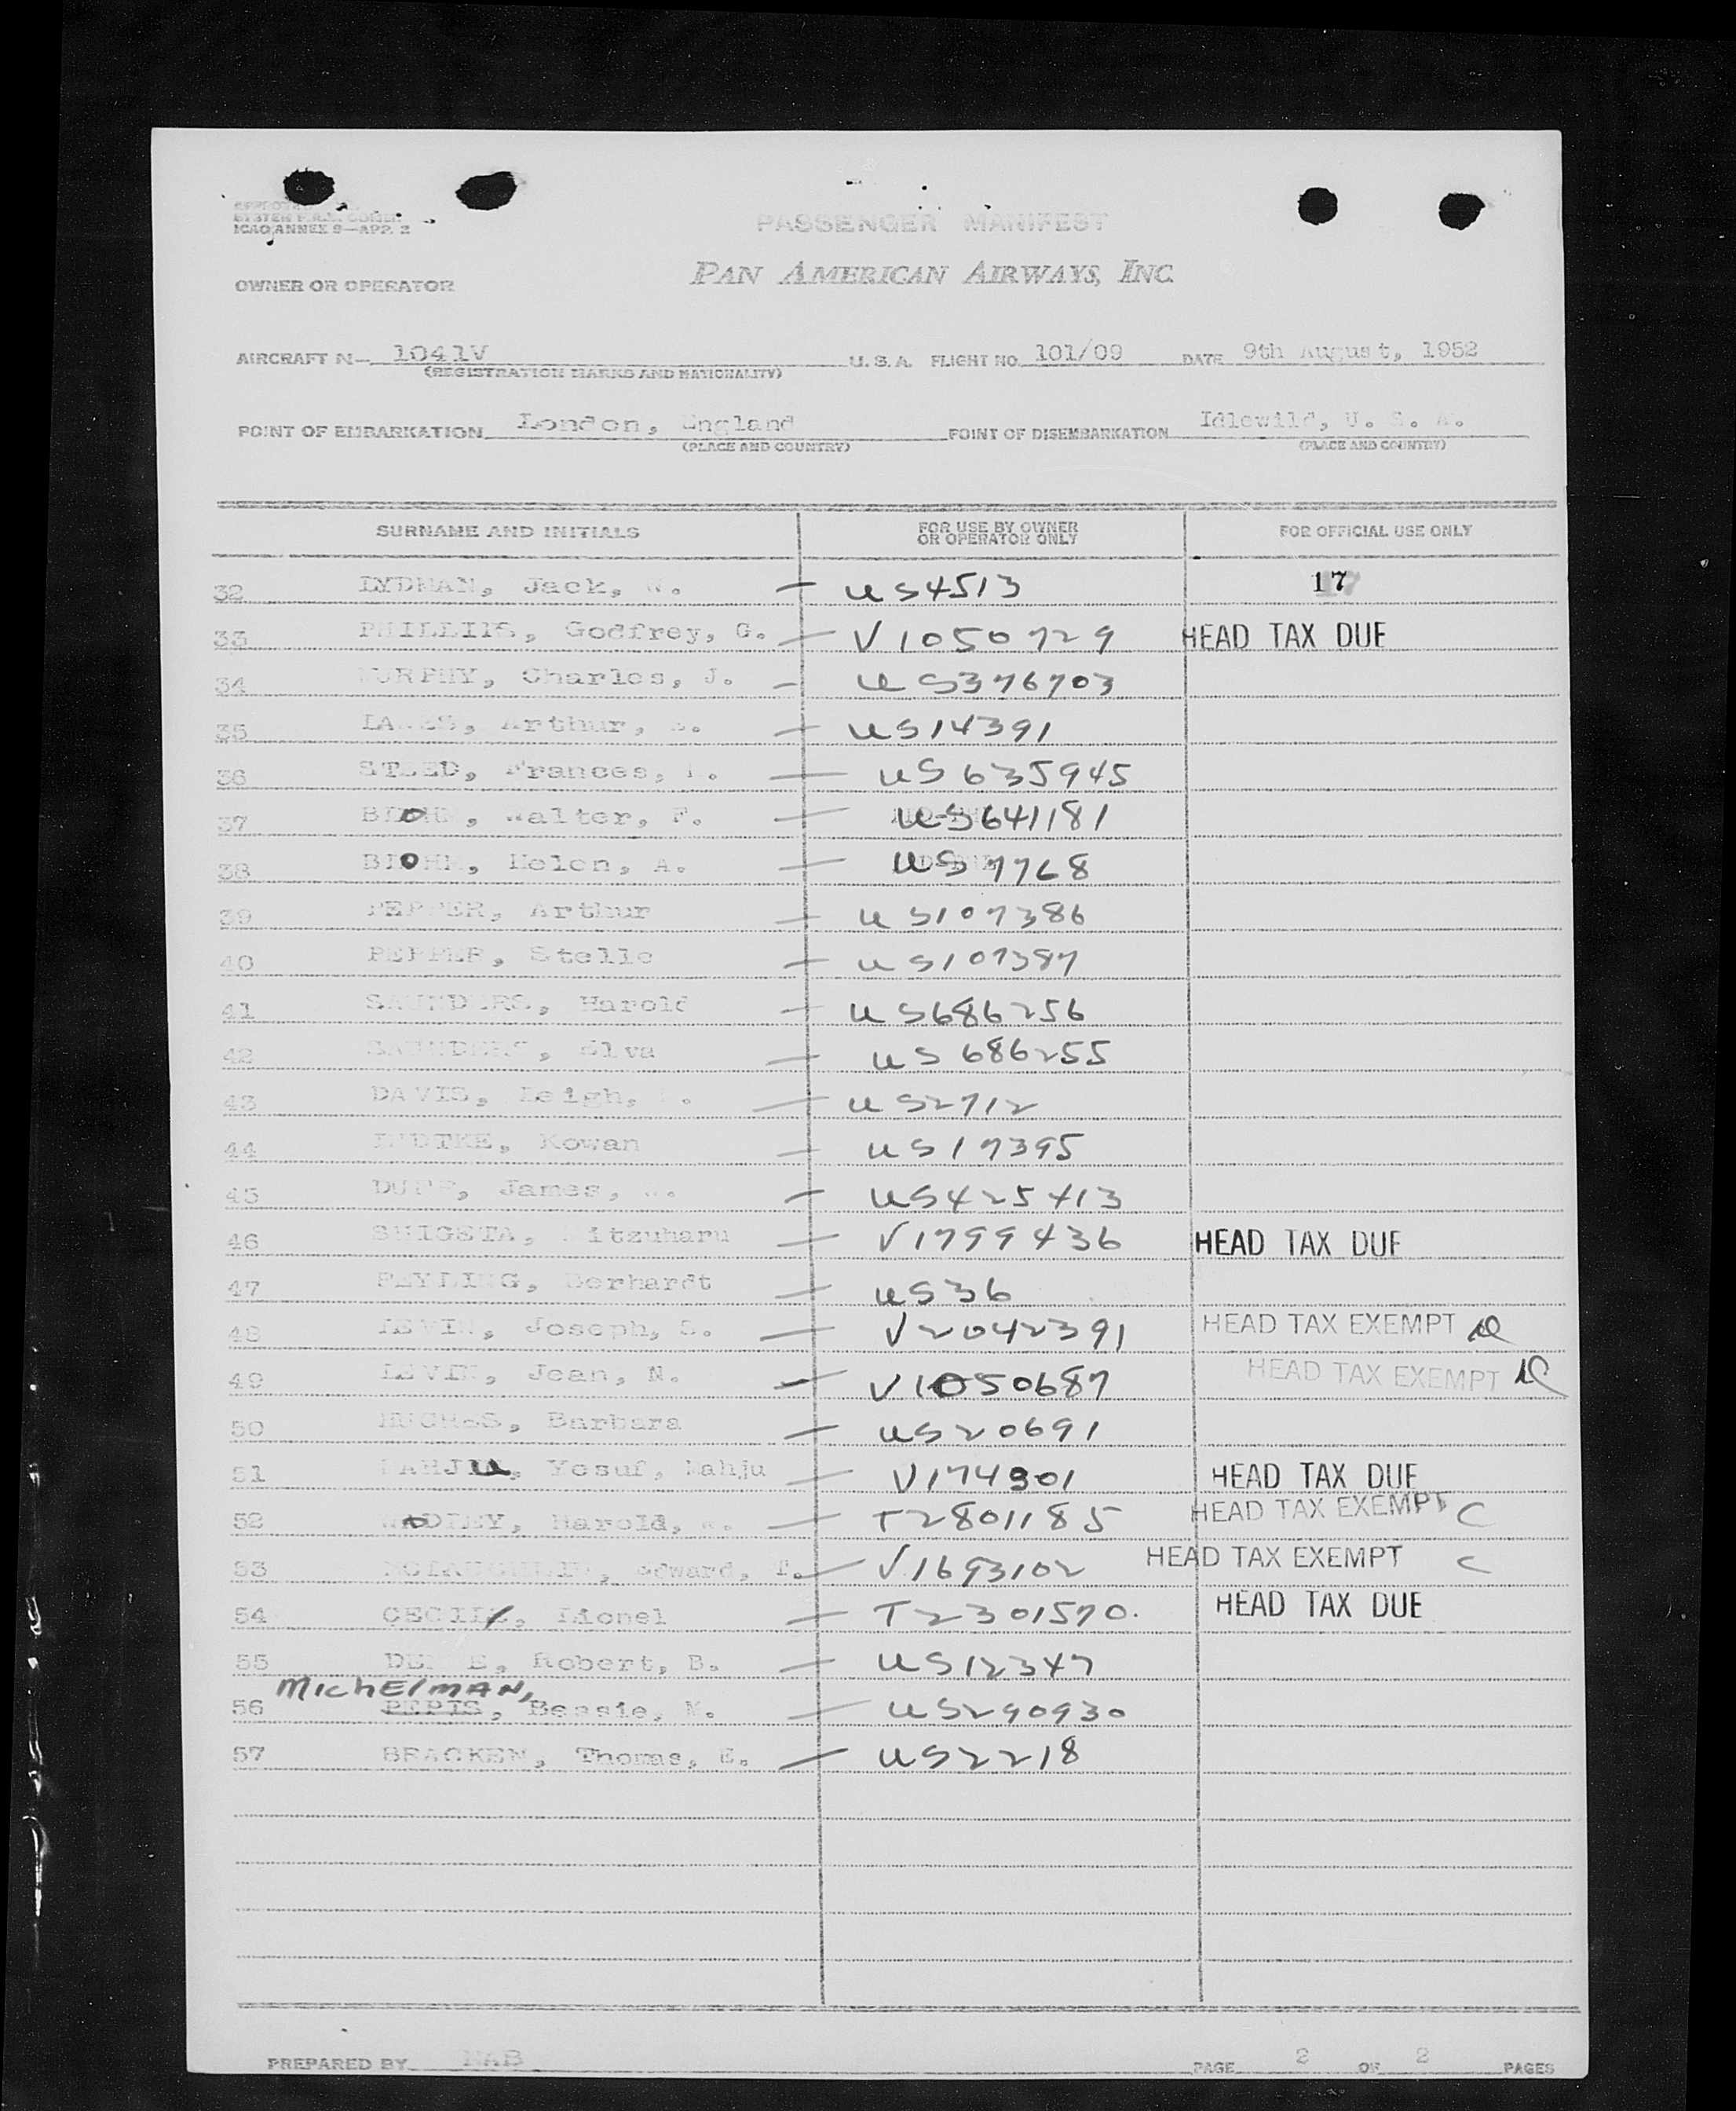 SYSTEM F.R.S. COMB.
ICAO ANNEX 9—APP. 2
PASSENGER MANIFEST
OWNER OR OPERATOR PAN AMERICAN AIRWAYS, INC.
AIRCRAFT N— 1041V U. S. A. FLIGHT NO. 101/09 DATE 9th August, 1952
(REGISTRATION MARKS AND NATIONALITY)
POINT OF EMBARKATION London, England POINT OF DISEMBARKATION Idlewild, U. S. A.
(PLACE AND COUNTRY) (PLACE AND COUNTRY)
SURNAME AND INITIALS FOR USE BY OWNER OR OPERATOR ONLY FOR OFFICIAL USE ONLY
32 LYDMAN, Jack, W. — US4513 17
33 PHILLIPS, Godfrey, G. — V1050729 HEAD TAX DUE
34 MURPHY, Charles, J. — US376703
35 Arthur, — US14391
36 STEED, Frances, — US635945
37 Walter, F. — US641181
38 Helen, A. — US7768
39 PEPPER, Arthur — US107386
40 PEPPER, Stelle — US107387
41 SAUNDERS, Harold — US686256
42 SAUNDERS, Elva — US686255
43 DAVIS, Leigh, — US2712
44 Kowan — US17395
45 DUFF, James, — US425413
46 SHIGETA, Mitzuharu — V1799436 HEAD TAX DUE
47 Gerhardt — US36
48 LEVIN, Joseph, S. — V2042391 HEAD TAX EXEMPT
49 LEVIN, Jean, N. — V1050687 HEAD TAX EXEMPT
50 HUGHES, Barbara — US20691
51 Yosuf, Mahju — V174901 HEAD TAX DUE
52 Harold, — T2801185 HEAD TAX EXEMPT C
53 Edward, T. — V1693102 HEAD TAX EXEMPT C
54 CECIL, Lionel — T2301570. HEAD TAX DUE
55 Robert, B. — US12347
MichElmAN,
56 PEPIS, Bessie, M. — US290930
57 BRACKEN, Thomas, E. — US2218
PREPARED BY NAB PAGE 2 OF 2 PAGES